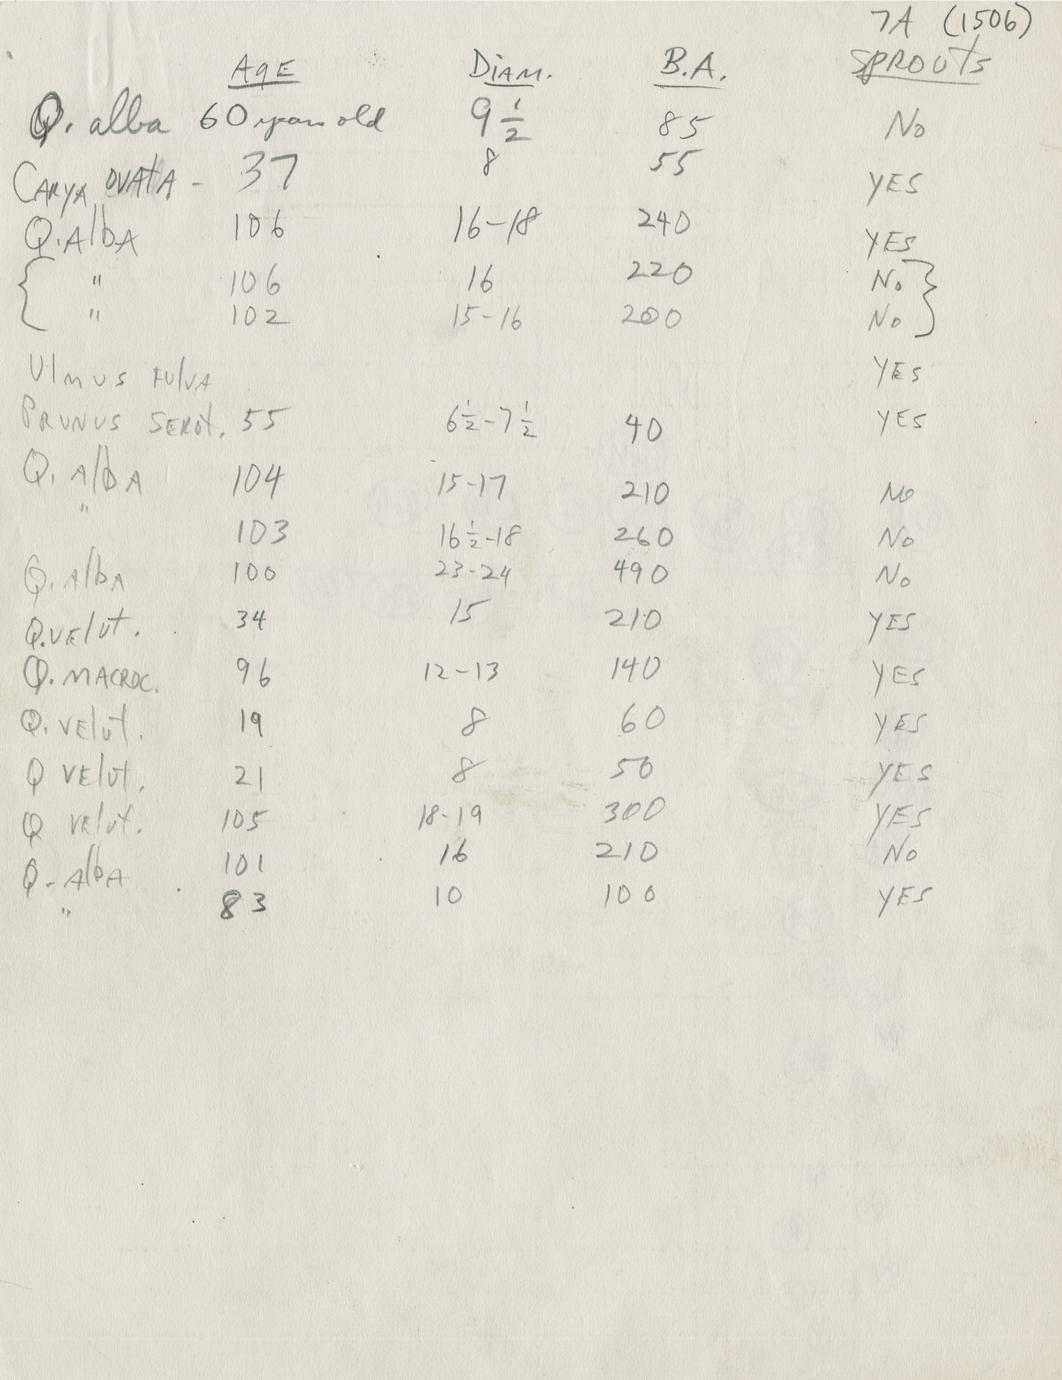 7A (1506)
AgE DiAM. B.A. SPROUTS
Q. alba 60 years old 9 1/2 85 No
CARYA OVATA - 37 8 55 YES
Q. AlbA 106 16-18 240 YES
{ " 106 16 220 No }
" 102 15-16 200 No
Ulmus FulVA YES
PRUNUS SEROT. 55 6 1/2-7 1/2 40 YES
Q. AlbA 104 15-17 210 No
" 103 16 1/2-18 260 No
Q. AlbA 100 23-24 490 No
Q. VElut. 34 15 210 YES
Q. MACROC. 96 12-13 140 YES
Q. VElut. 19 8 60 YES
Q VElut. 21 8 50 YES
Q VElut. 105 18-19 300 YES
Q - AlbA 101 16 210 No
" 83 10 100 YES